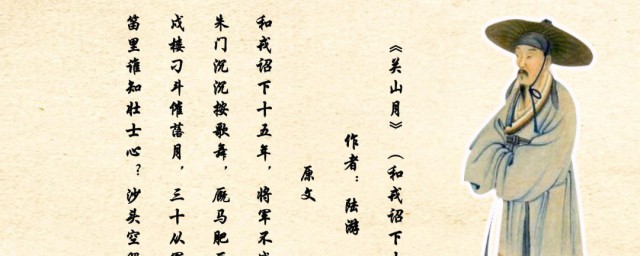 《关山月》（和戎诏下十
作者：陆游
原文
和戎诏下十五年，将军不
朱门沉沉按歌舞，厩马肥
戍楼刁斗催落月，三十从
笛里谁知壮士心？沙头空